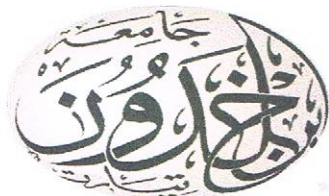 جَامعة
ابن خَلدُون
تيارت